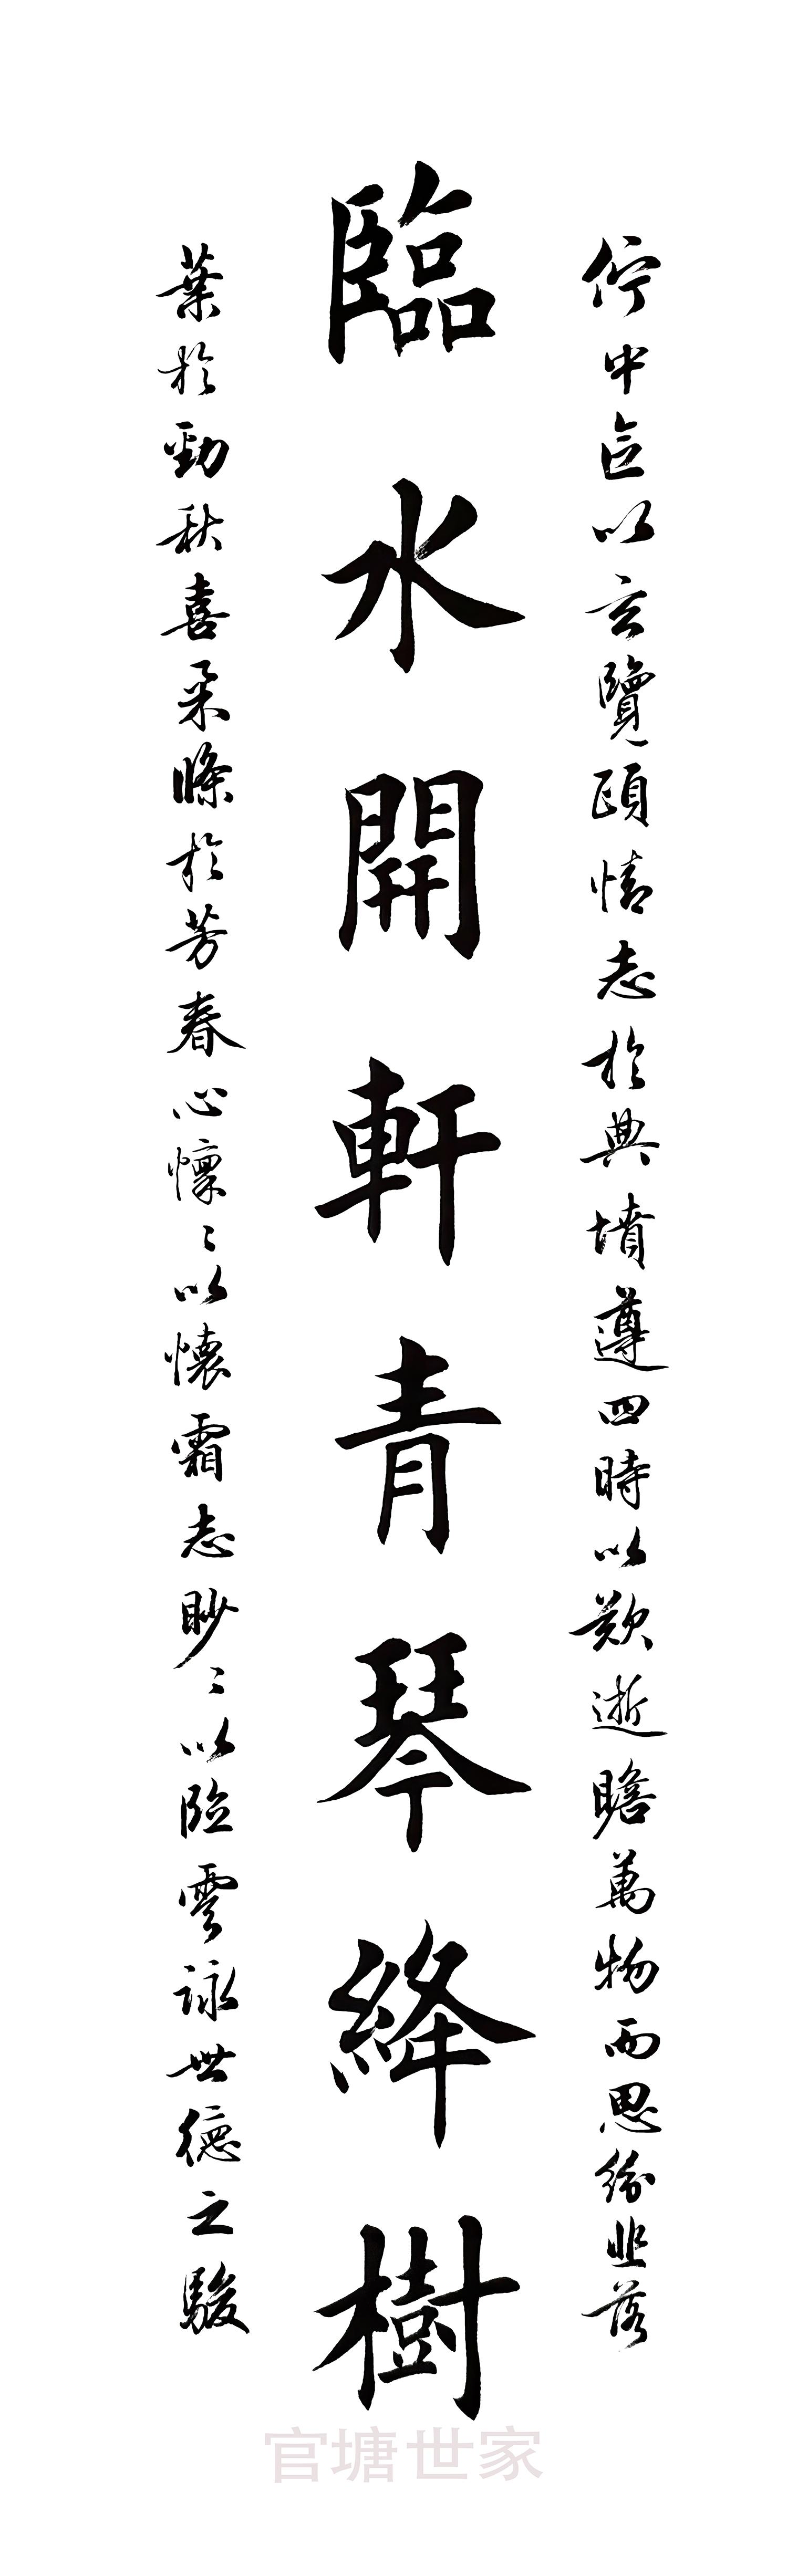 佇中區以玄覽頤情志於典墳遵四時以歎逝瞻萬物而思紛悲落
臨水開軒青琴絳樹
葉於勁秋喜柔條於芳春心懍〻以懷霜志眇〻以臨雲詠世德之駿
官塘世家